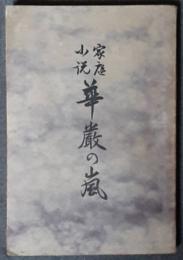 家庭
小説
華厳の嵐